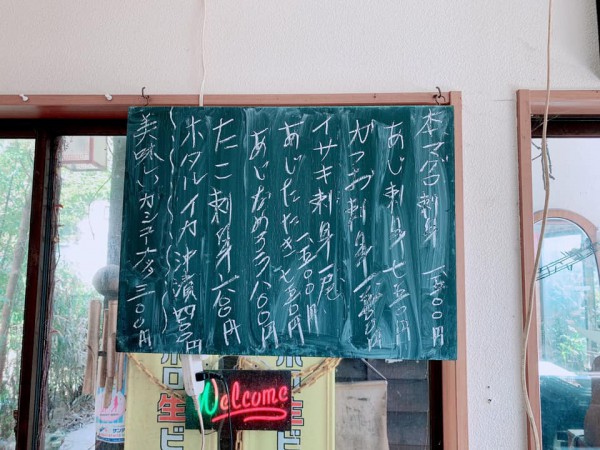 本マグロ刺身 一五〇〇円
あじ刺身 七五〇円
かつお刺身 一二〇〇円
イサキ刺身一尾 一五〇〇円
あじたたき 七五〇円
あじなめろう 八〇〇円
たこ刺身 六〇〇円
ホタルイカ沖漬 四五〇円
美味しいカシューナッツ 三〇〇円
Welcome